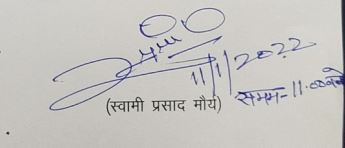 11/1/2022
(स्वामी प्रसाद मौर्य) समय-11.00बजे